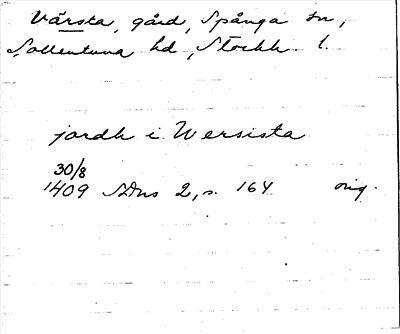 Vårsta, gård, Spånga sn,
Sollentuna hd, Stockh. l.
jordh i Wersista
30/8
1409 SDns 2, s. 164 orig.